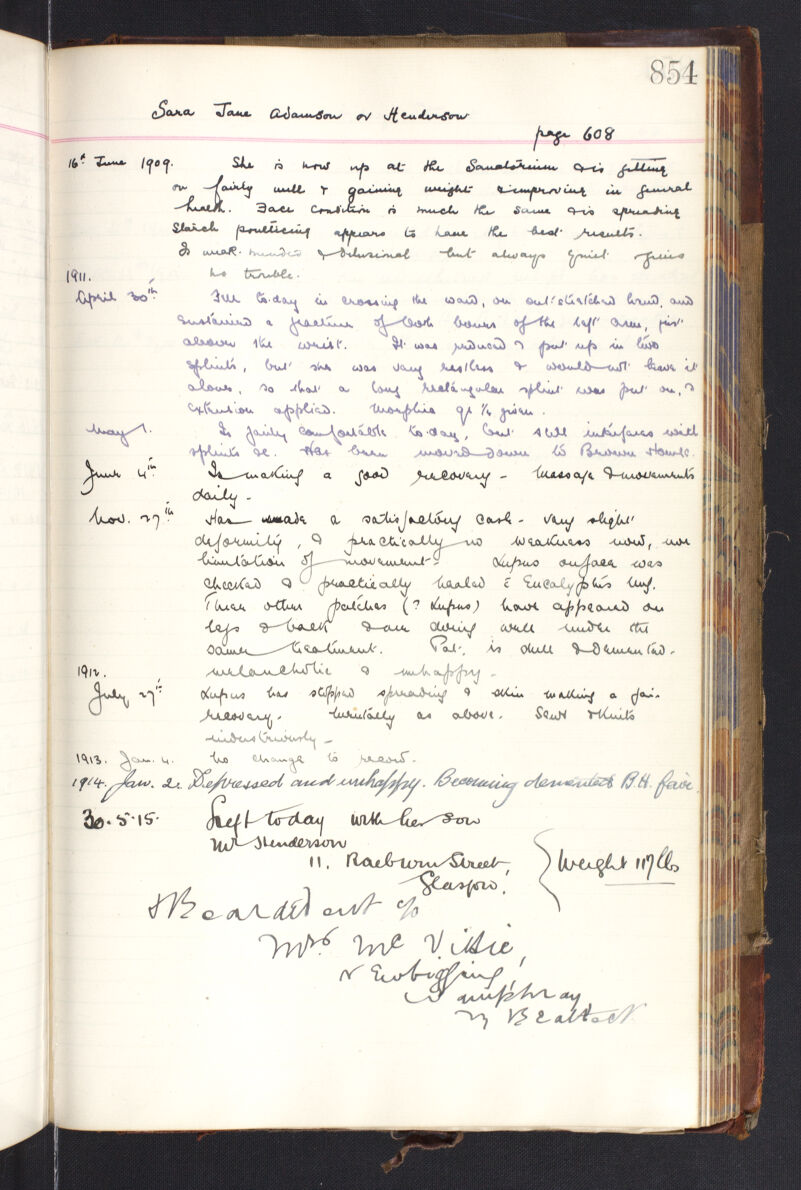 854
Sara Jane Adamson or Henderson
page 608
16th June 1909. She is now up at the Sanatorium & is getting
on fairly well & gaining weight & improving in general
health. Face condition is much the same & is spreading
Starch poulticing appears to have the best results.
Is weak-minded & delusional but always quiet gives
no trouble.
1911.
April 30th Fell to-day in crossing the ward, on outstretched hand, and
sustained a fracture of both bones of the left arm, just
above the wrist. It was reduced & put up in two
splints, but she was very restless & would not leave it
alone, so that a long rectangular splint was put on, &
extension applied. Morphia gr ¼ given.
May 1. Is fairly comfortable to-day, but still interferes with
splints &c. Has been moved down to Brown House.
June 4th Is making a good recovery - massage & movements
daily -
Nov. 27th Has made a satisfactory case - very slight
deformity, & practically no weakness now, nor
limitation of movement - Lupus on face was
checked & practically healed c̄ Eucalyptus Ung.
Three other patches (? Lupus) have appeared on
legs & back & are doing well under the
same treatment. Pat. is dull & demented -
melancholic & unhappy -
1912.
July 27th Lupus has stopped spreading & skin making a fair
recovery - Mentally as above. Sews & Knits
industriously -
1913. Jan. 4. No change to record.
1914. Jan. 2. Depressed and unhappy. Becoming demented B.H. fair.
30.5.15. Left today with her son
Mr Henderson
11, Raeburn Street,
Glasgow.
Weight 117 lbs
c/o
Mrs Mc